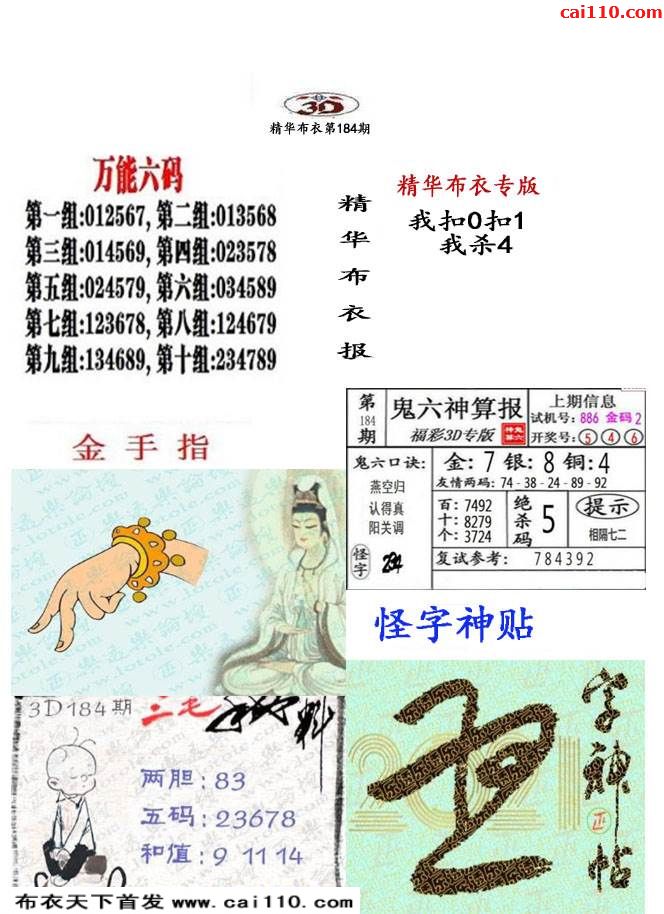 cai110.com
3D
精华布衣第184期
万能六码
第一组:012567, 第二组:013568
第三组:014569, 第四组:023578
第五组:024579, 第六组:034589
第七组:123678, 第八组:124679
第九组:134689, 第十组:234789
精华布衣报
精华布衣专版
我扣0扣1
我杀4
金手指
第184期
鬼六神算报
福彩3D专版
上期信息
试机号: 886 金码 2
开奖号: 5 4 6
鬼六口诀:
燕空归
认得真
阳关调
金: 7 银: 8 铜: 4
友情两码: 74-38-24-89-92
百: 7492
十: 8279
个: 3724
绝杀码
5
提示
相隔七二
怪字
复试参考: 784392
怪字神贴
3D184期
三毛
料
两胆: 83
五码: 23678
和值: 9 11 14
2021
字神帖
布衣天下首发 www.cai110.com